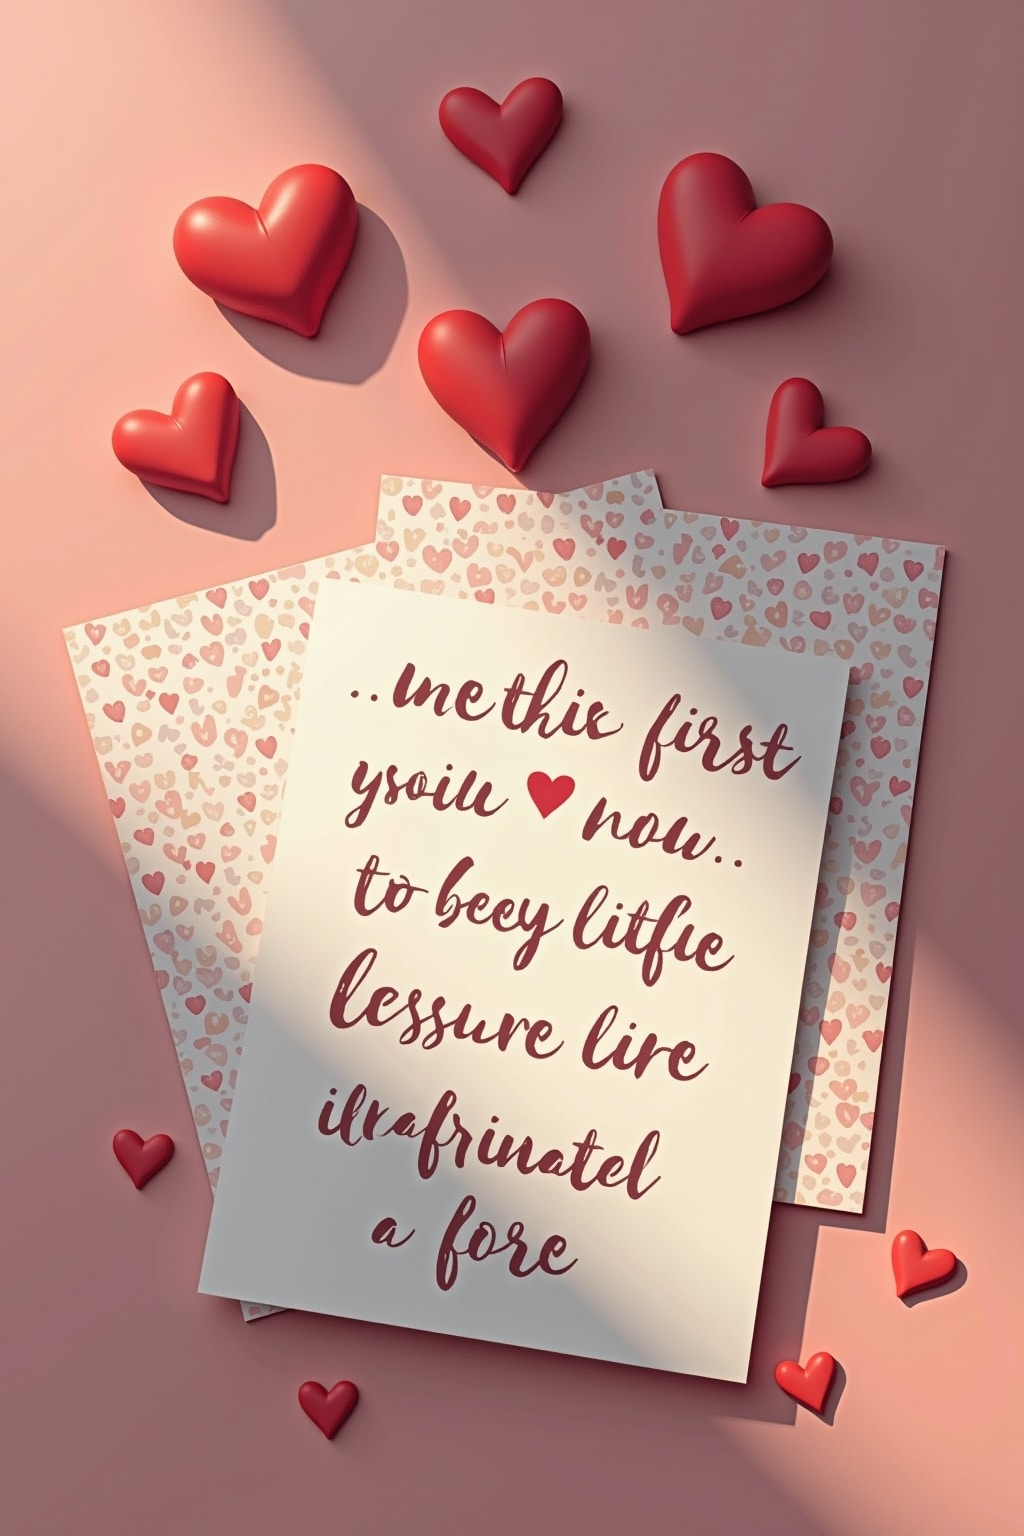 ..me this first
ysoiu ♥ now..
to beey litfie
lessure lire
ilxafrinatel
a fore